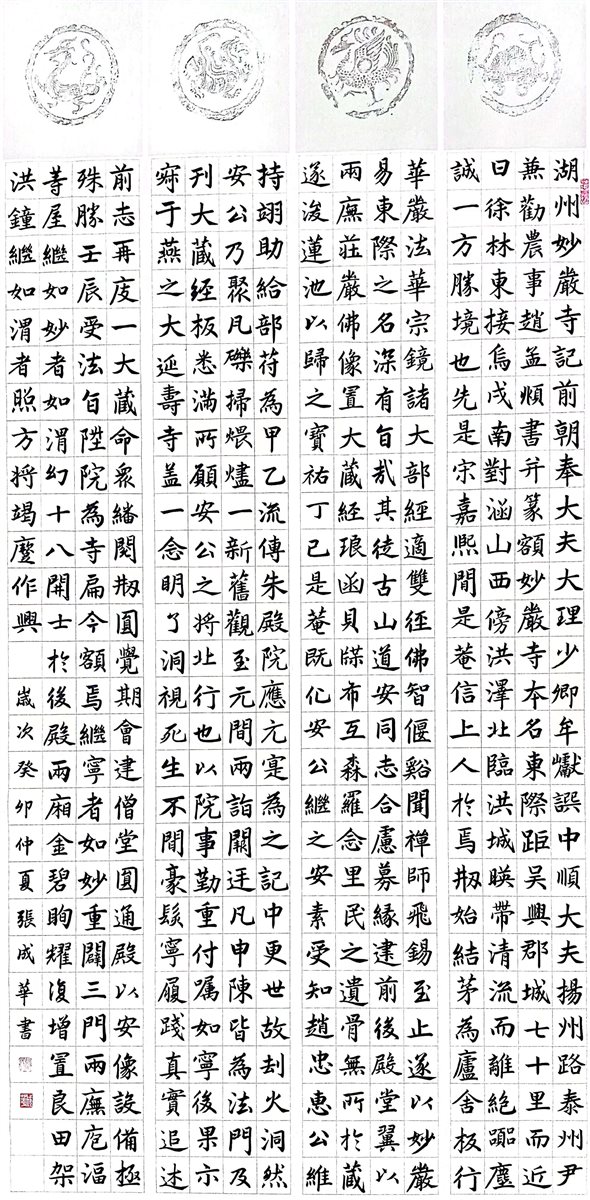 湖州妙嚴寺記前朝奉大夫大理少卿牟巘譔中順大夫揚州路泰州尹
兼勸農事趙孟頫書并篆額妙嚴寺本名東際距吳興郡城七十里而近
曰徐林東接烏戍南對涵山西傍洪澤北臨洪城暎帶清流而離絕嚻塵
誠一方勝境也先是宋嘉熙間是菴信上人於焉刱始結茅為廬舍板行
華嚴法華宗鏡諸大部經適雙徑佛智偃谿聞禪師飛錫至止遂以妙嚴
易東際之名深有旨哉其徒古山道安同志合慮募緣建前後殿堂翼以
兩廡莊嚴佛像置大藏經琅函貝牒布互森羅念里民之遺骨無所於藏
遂浚蓮池以歸之寶祐丁巳是菴既化安公繼之安素受知趙忠惠公維
持翊助給部苻為甲乙流傳朱殿院應元寔為之記中更世故刦火洞然
安公乃聚凡礫掃煨燼一新舊觀至元間兩詣闕廷凡申陳皆為法門及
刊大藏經板悉滿所願安公之將北行也以院事勤重付囑如寧後果示
寂于燕之大延壽寺蓋一念明了洞視死生不間豪髮寧履踐真實追述
前志再庋一大藏命眾繙閱刱圓覺期會建僧堂圓通殿以安像設備極
殊勝壬辰受法旨陞院為寺扁今額焉繼寧者如妙重闢三門兩廡庖湢
等屋繼如妙者如渭幻十八開士於後殿兩廂金碧眴耀復增置良田架
洪鐘繼如渭者照方將竭廑作興 歲次癸卯仲夏張成華書